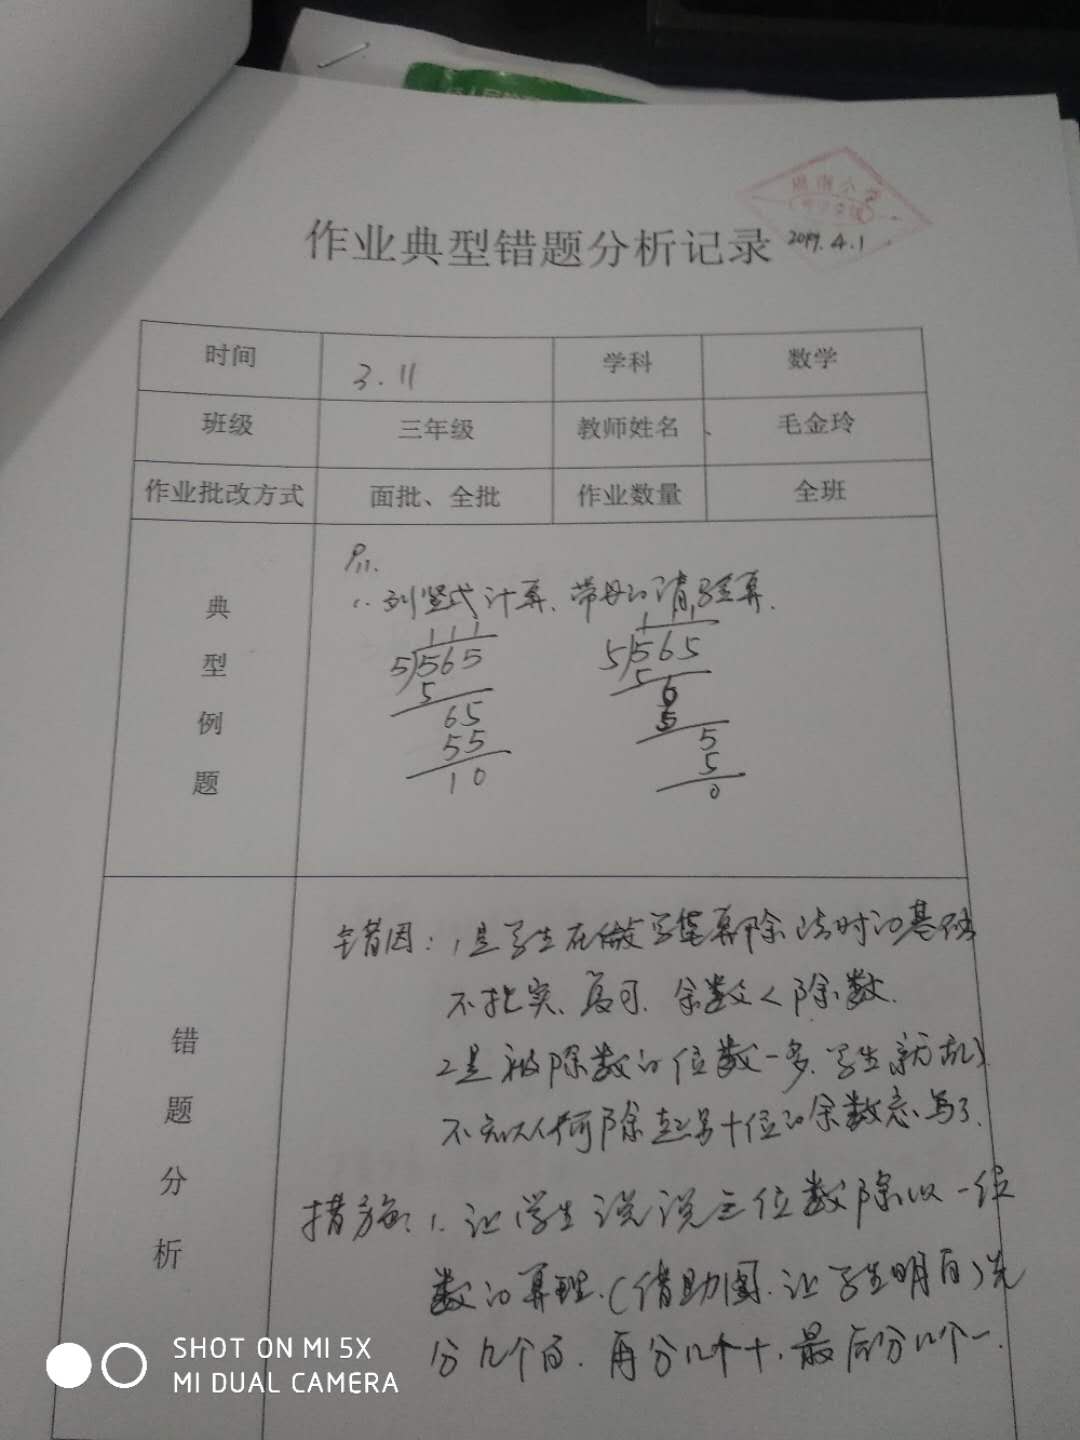 周南小学
2019.4.1
作业典型错题分析记录
时间 3.11 学科 数学
班级 三年级 教师姓名 毛金玲
作业批改方式 面批、全批 作业数量 全班
典型例题
P11.
1. 列竖式计算、带母的请验算.
111 11
5)565 5)565
5 5
65 6
55 5
10 5
5
0
错题分析
错因：1是学生在做笔算除法时的基础
不扎实、复习、余数<除数.
2是被除数的位数一多、学生就乱)
不知从何除起另十位的余数忘写了.
措施：1.让学生说说三位数除以一位
数的算理.(借助图.让学生明白)先
分几个百.再分几个十.最后分几个一.
SHOT ON MI 5X
MI DUAL CAMERA